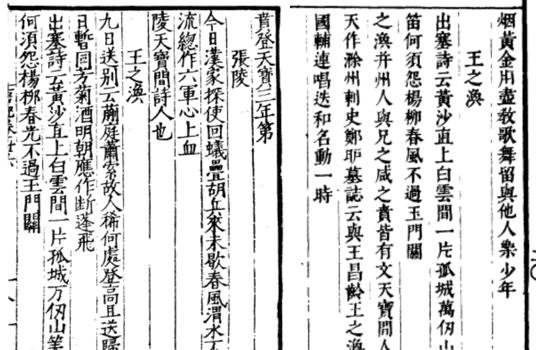 烟黃金用盡敎歌舞留與他人樂少年
王之渙
出塞詩云黃沙直上白雲間一片孤城萬仞山
笛何須怨楊柳春風不過玉門關
之渙并州人與兄之咸之賁皆有文天寶間人
天作滁州刺史鄭昈墓誌云與王昌齡王之渙
國輔連唱迭和名動一時
賁登天寶三年第
張陵
今日漢家探使回蟻疊胡兵來未歇春風渭水不
流總作六軍心上血
陵天寶間詩人也
王之渙
九日送別云薊庭蕭索故人稀何處登高且送歸
日暫同芳菊酒明朝應作斷蓬飛
出塞詩云黃沙直上白雲間一片孤城万仞山
何須怨楊栁春光不過玉門關